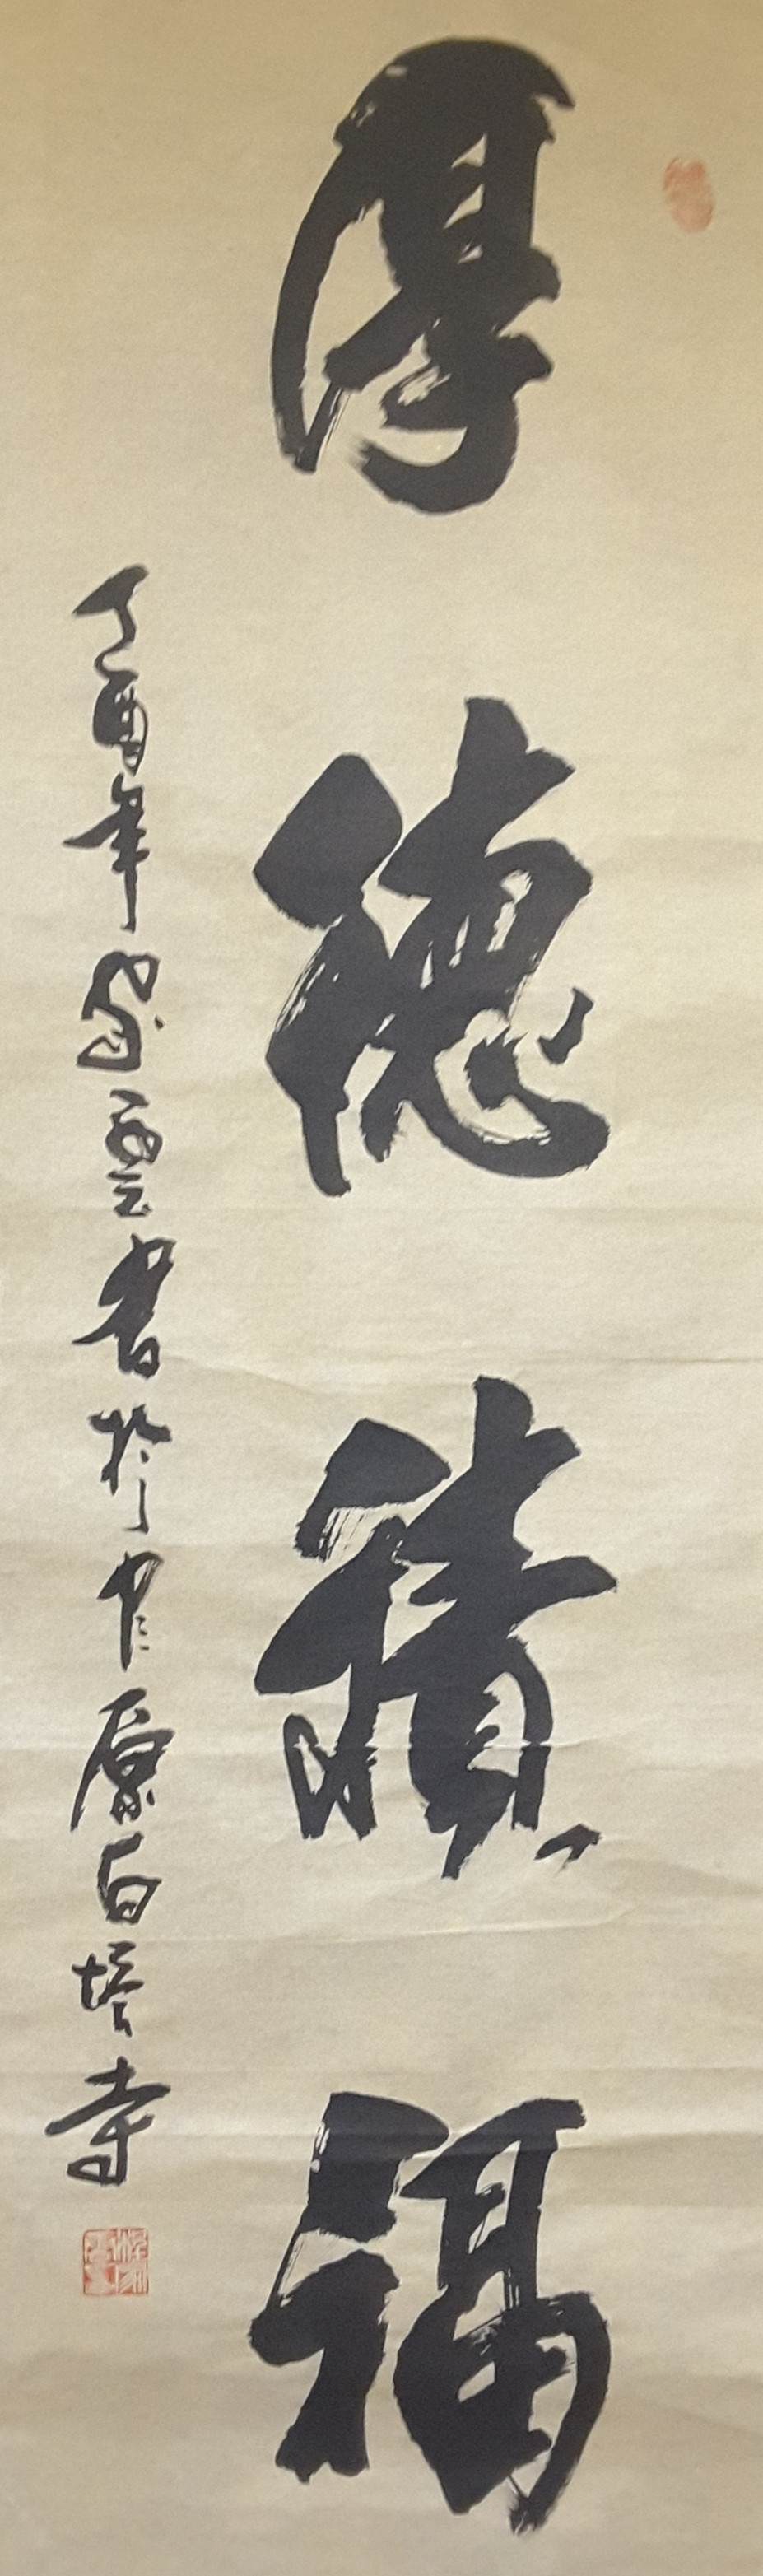 厚德積福
丁酉年家雲書於中原白塔寺